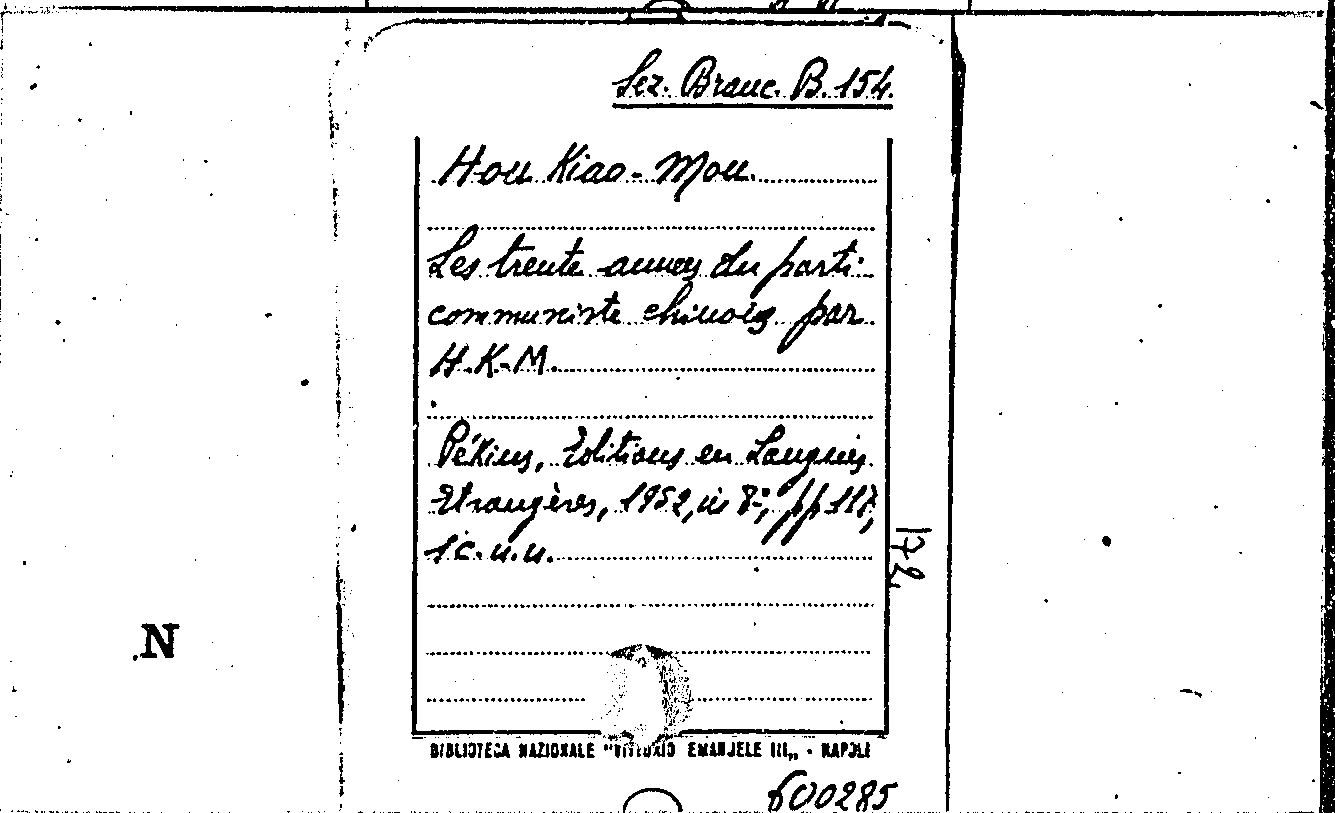 Sez. Branc. B. 154.
Hou Kiao-Mou.
Les trente années du parti
communiste chinois par
H.K-M.
Pékins, Editions en Langues
Etrangères, 1952, in 8º, pp 117,
1 c. n. n.
172
N
BIBLIOTECA NAZIONALE "VITTORIO EMANUELE III„ - NAPOLI
600285